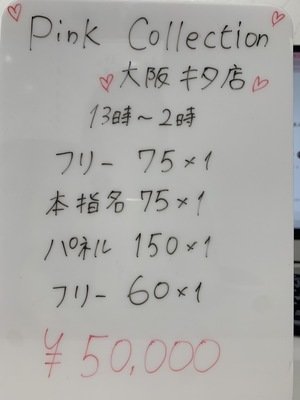 Pink Collection
大阪キタ店
13時～2時
フリー 75×1
本指名 75×1
パネル 150×1
フリー 60×1
¥50,000